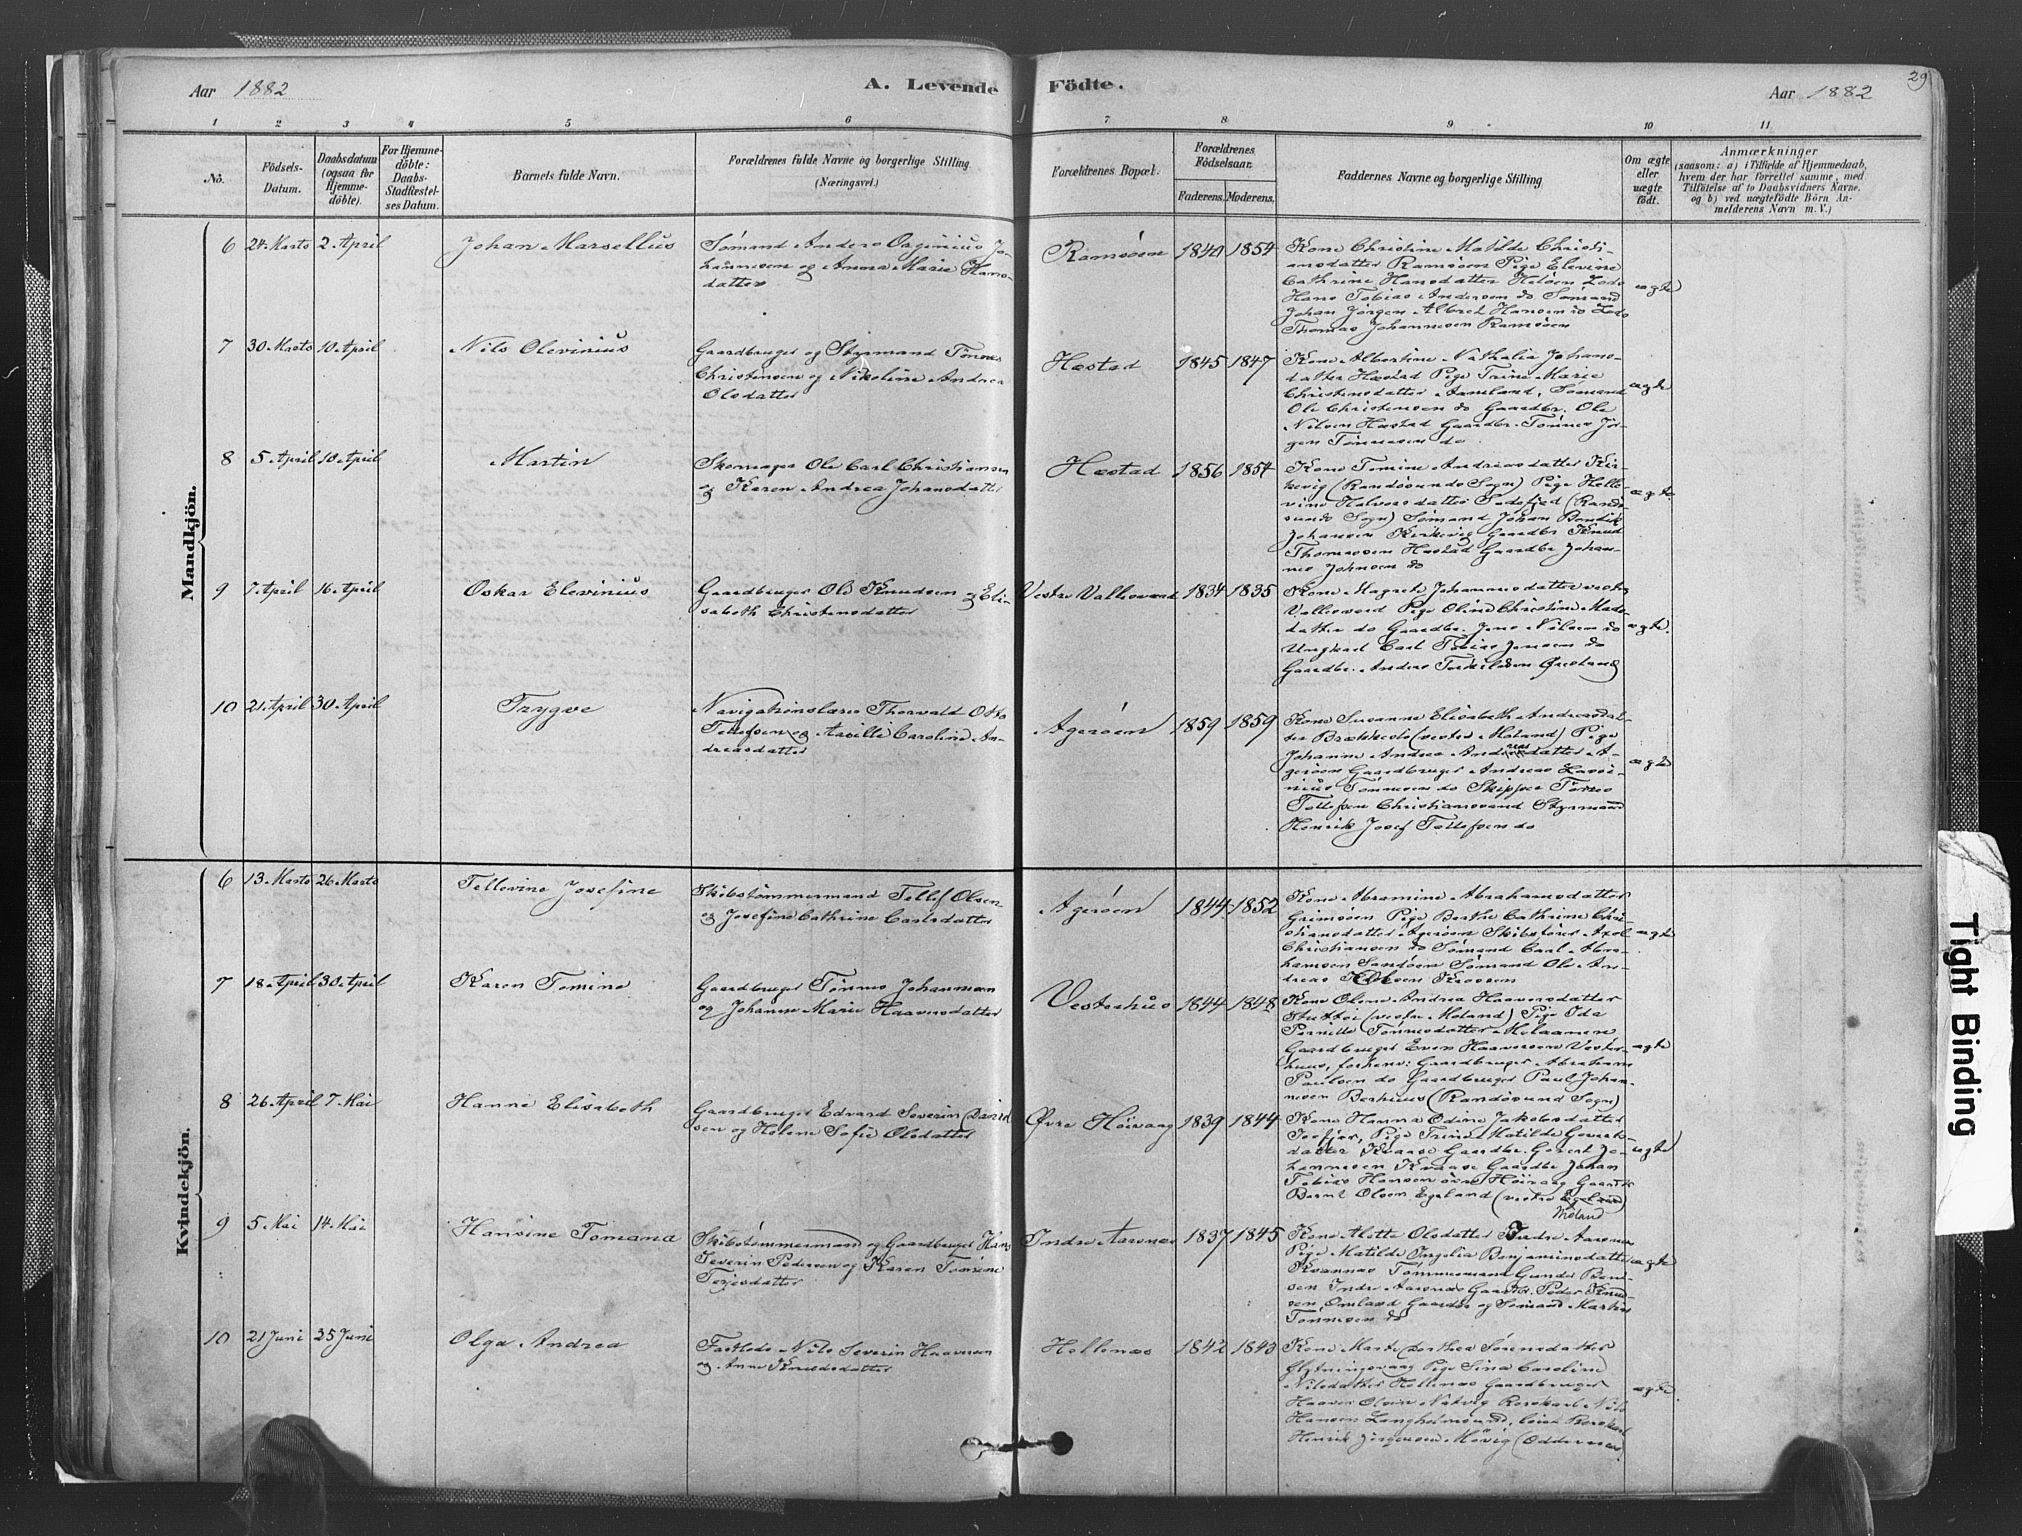 Aar 1882
A. Levende Födte.
Aar 1882
29
1 2 3 4 5 6 7 8 9 10 11
No.
Födsels-Datum.
Daabsdatum (ogsaa for Hjemme-döbte).
For Hjemme-döbte: Daabs-Stadfæstel-ses Datum.
Barnets fulde Navn.
Forældrenes fulde Navne og borgerlige Stilling.
(Næringsvei.)
Forældrenes Bopæl.
Forældrenes Födselsaar.
Faderens. Moderens.
Faddernes Navne og borgerlige Stilling
Om ægte eller uægte födt.
Anmærkninger
(saasom: a) i Tilfælde af Hjemmedaab,
hvem der har forrettet samme, med
Tilföielse af to Daabsvidners Navne.
og b) ved uægtefödte Börn An-
melderens Navn m. V.)
Mandkjön.
6 24 Marts 2 April Johan Marsellius
Sømand Anders Orginius Jo-
hannesen og Anna Marie Hans-
datter
Ramsøen 1840 1854
Kone Christine Matilde Christi-
ansdatter Ramsøen Pige Elevine
Cathrine Hansdatter Heløen Lods
Hans Tobias Andersen do Sømand
Johan Jörgen Albret Hansen do Lods
Thomas Johannesen Ramsøen
ægte
7 30 Marts 10 April Nils Olevinius
Gaardbruger og Styrmand Tönnes
Christensen og Nikoline Andrea
Olsdatter
Hæstad 1845 1847
Kone Albertine Nathalia Johans-
datter Hæstad Pige Trine Marie
Christensdatter Aamland, Sømand
Ole Christensen do Gaardbr. Ole
Nilsen Hæstad Gaardbr. Tönnes Jör-
gen Tönnesen do.
ægte
8 5 April 10 April Martin
Skomager Ole Carl Christiansen
og Karen Andrea Johansdatter
Hæstad 1856 1854
Kone Tomine Andreasdatter Kir-
kevig (Randøsunds Sogn) Pige Helle-
vine Halvorsdatter Sodefjed (Rand-
sunds Sogn) Sømand Johan Bendik
Johansen Kirkevig Gaardbr Knud
Thomassen Hæstad Gaardbr Johan-
nes Johnsen do
ægte
9 7 April 16 April Oskar Elevinius
Gaardbruger Ole Knudsen og Eli-
sabeth Christensdatter
Vestre Vallesverd 1834 1835
Kone Magrete Johannesdatter vestre
Vallesverd Pige Oline Christine Mads-
datter do Gaardbr. Jens Nilsen do
Ungkarl Carl Tobias Jensen do
Gaardbr. Anders Terkildsen
ægte.
10 21 April 30 April Trygve
Navigationslærer Thorvald Otto
Tellefsen og Aasille Caroline An-
dreasdatter
Agerøen 1859 1859
Kone Susanne Elisabeth Andreasdat-
ter Brækkestø (vestre Moland) Pige
Johanne Andrea Andreasdatter A-
gerøen Gaardbruger Andreas Lavri-
nius Tönnesen do Skipper Tönnes
Tellefsen Christianssand Styrmand
Henrik Josef Tellefsen do
ægte
Kvindekjön.
6 13 Marts 26 Marts Tellevine Josefine
Skibstømmermand Tellef Olsen
og Josefine Cathrine Carlsdatter
Agerøen 1844 1852
Kone Abramine Abrahamsdatter
Grimsøen Pige Berthe Cathrine Chri-
stiansdatter Agerøen Skibsfører Axel
Christiansen do Sømand Carl Abra-
hamsen Sandøen Sømand Ole An-
dreas Olsen Krossen
ægte
7 18 April 30 April Karen Tomine
Gaardbruger Tönnes Johannesen
og Johanne Marie Haaversdatter
Vesterhuus 1844 1848
Kone Olene Andrea Haaversdatter
(vestre Moland) Pige Ida
Pernille Tönnesdatter
Gaardbruger Even Haaversen Vester-
huus, Gaardbruger Abraham
Paulsen do Gaardbruger Paul Johan-
nesen (Randøsund Sogn)
ægte
8 26 April 7 Mai Hanne Elisabeth
Gaardbruger Edvard Severin David-
sen og Helene Sofie Olsdatter
Øvre Höivaag 1839 1844
Kone Hanna Odine Jakobsdatter
Isefjær, Pige Trine Matilde Govert-
datter Kvaase Gaardbr. Govert Jo-
hannesen Kvaase Gaardbr Johan
Tobias Hansen övre Höivaag Gaardb
Bernt Olsen Egeland (vestre
Moland
ægte
9 5 Mai 14 Mai Hansine Tomana
Skibstømmermand og Gaardbruger Hans
Severin Pedersen og Karen Tomine
Terjesdatter
Indre Aarsnes 1837 1845
Kone Mette Olsdatter Indre Aarsnes
Pige Matilde Orgelia Benjaminsdatter
Tömmermand Gunder Ben-
sen Indre Aarsnes Gaardbr. Peder Knud-
sen Omland Gaardbr og Sömand Martin
Tönnesen do
ægte
10 21 Juni 25 Juni Olga Andrea
Fastlods Nils Severin Haaversen
og Anne Knudsdatter
Hellenæs 1842 1843
Kone Marte Dorthea Sørensdatter
Pige Sina Caroline
Nilsdatter Hellenæs Gaardbruger
Haaver Olsen Natvig Roerskarl Nils
Hansen Langholmsund, Roerskarl
Henrik Jörgensen Møvig (Oddernes
ægte
Tight Binding